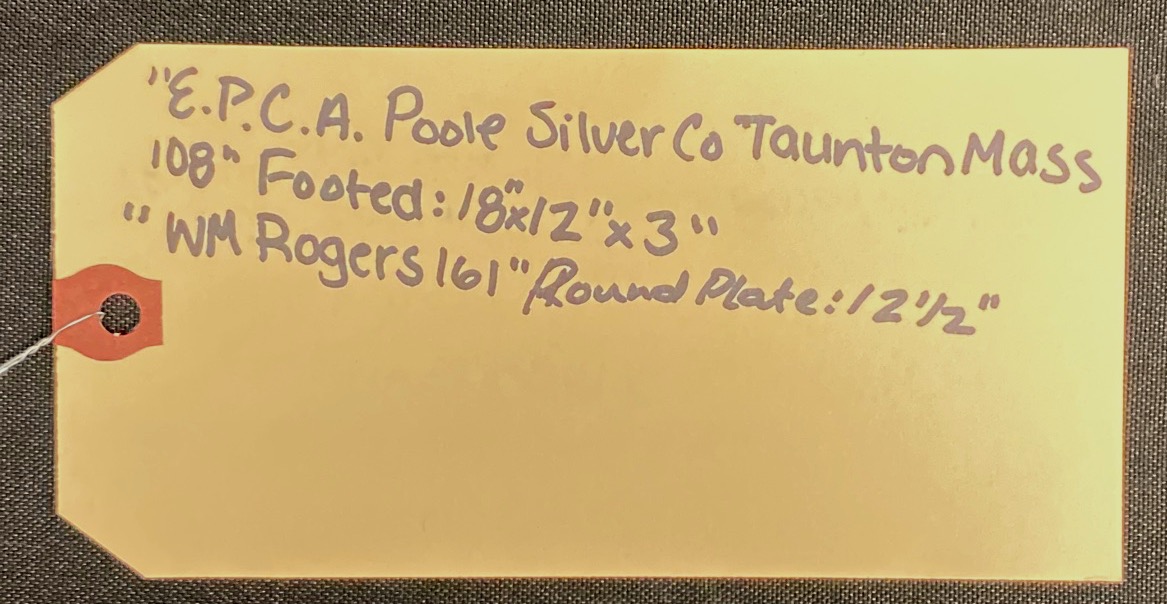 "E.P.C.A. Poole Silver Co Taunton Mass
108" Footed: 18"x12"x3"
"WM Rogers 161" Round Plate: 12 1/2"